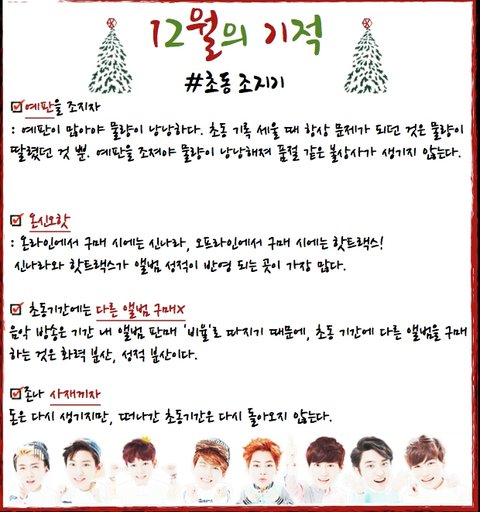 12월의 기적
#초동 조지기
예판을 조지자
: 예판이 많아야 물량이 낭낭하다. 초동 기록 세울 때 항상 문제가 되던 것은 물량이
딸렸던 것 뿐. 예판을 조져야 물량이 낭낭해져 품절 같은 불상사가 생기지 않는다.
온신오핫
: 온라인에서 구매 시에는 신나라, 오프라인에서 구매 시에는 핫트랙스!
신나라와 핫트랙스가 앨범 성적이 반영 되는 곳이 가장 많다.
초동기간에는 다른 앨범 구매X
음악 방송은 기간 내 앨범 판매 '비율'로 따지기 때문에, 초동 기간에 다른 앨범을 구매
하는 것은 화력 분산, 성적 분산이다.
존나 사재끼자
돈은 다시 생기지만, 떠나간 초동기간은 다시 돌아오지 않는다.